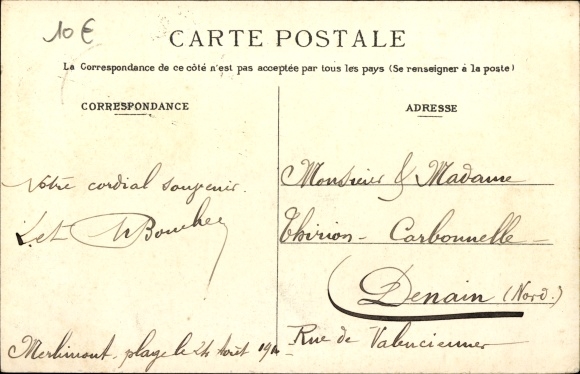 10€
CARTE POSTALE
La Correspondance de ce côté n'est pas acceptée par tous les pays (Se renseigner à la poste)
CORRESPONDANCE
Votre cordial souvenir.
L et M Boucher
Merlimont-plage le 24 Août 191
ADRESSE
Monsieur & Madame
Thirion-Carbonnelle-
Denain (Nord.)
Rue de Valenciennes